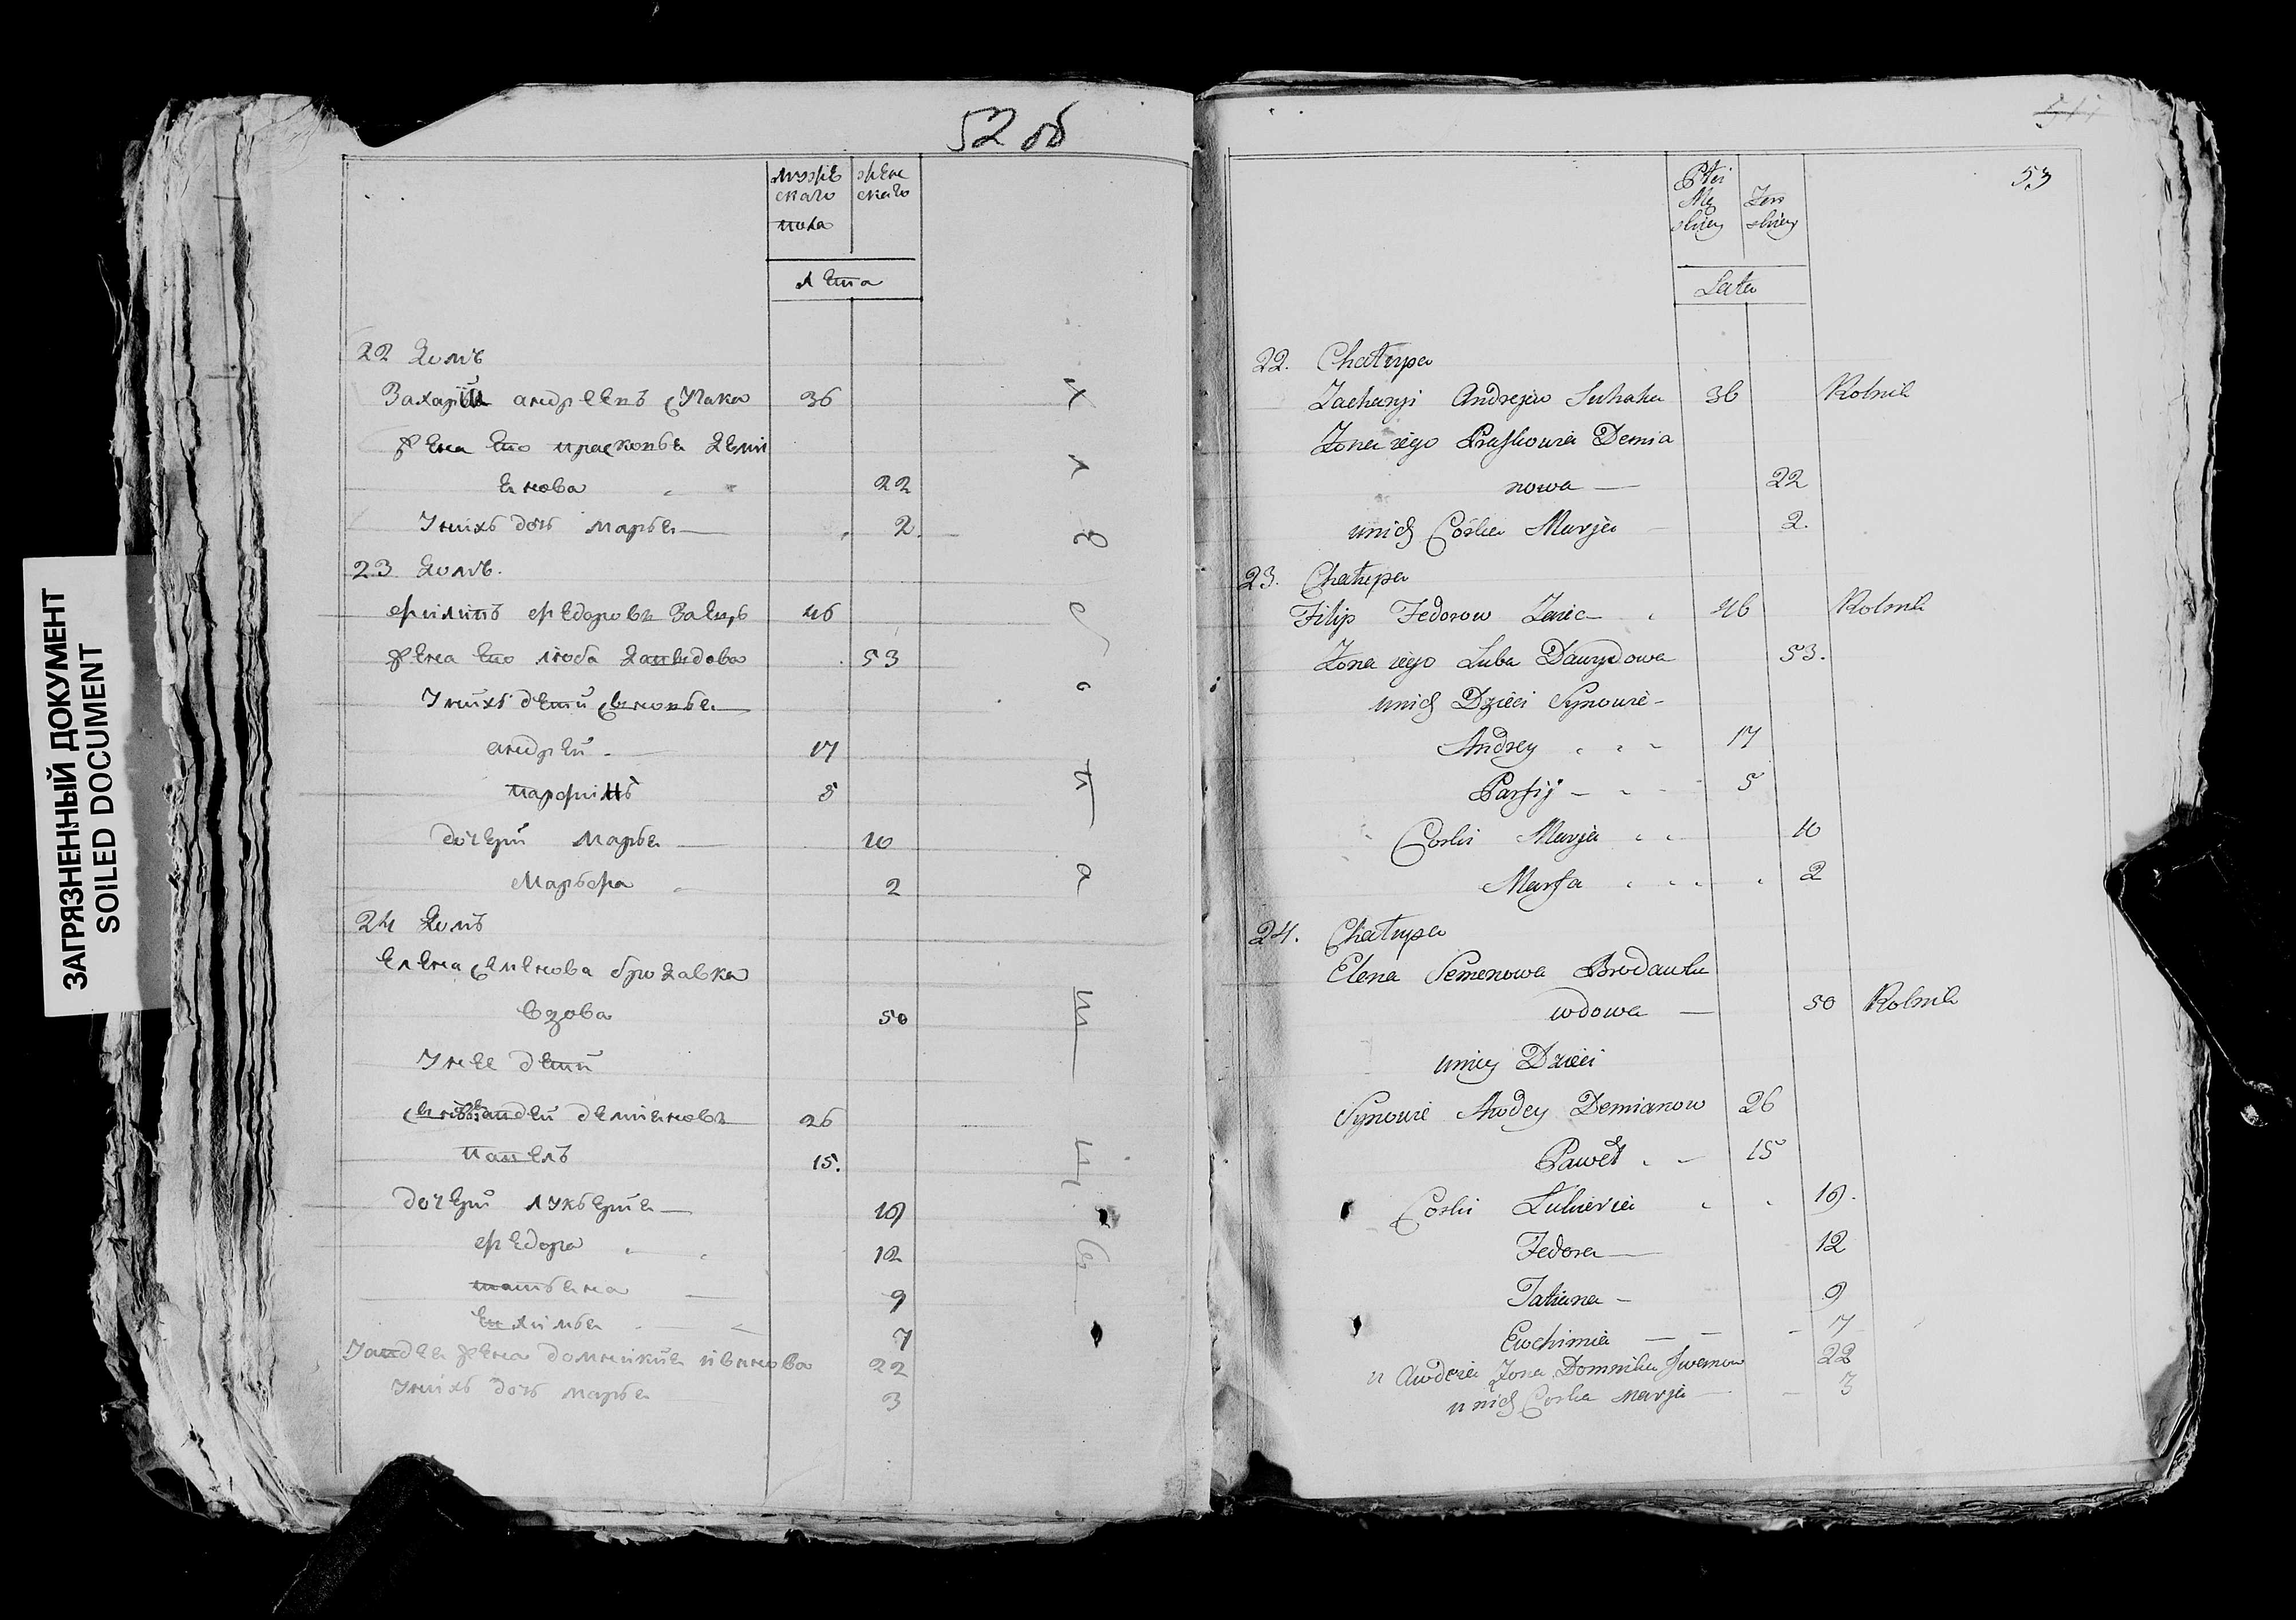 ЗАГРЯЗНЕННЫЙ ДОКУМЕНТ
SOILED DOCUMENT
52 об
мужескаго пола
женскаго
лета
22 домъ
Захарій андреевъ Сугака 36
жена ево прасковья деми
янова 22
Унихъ дочь марья — 2.
23 домъ.
филипъ федоровъ Заецъ 46
жена ево люба давыдова 53
Унихъ дети сыновья
андрей 17
парфинъ 5
дочери марья — 10
Марьфа 2
24 домъ
елена семенова бродавка
вдова 50
Унее дети
сынъ авдей демияновъ 26
павелъ 15.
дочери лукерия — 19
федора 12
татьяна — 9
евхимья 7
Уавдея жена домникия иванова 22
Унихъ дочь марья 3
хлебопашецъ
53
Płci
Mę
skiey
Żen
skiey
Lata
22. Chałupa
Zacharyi Andrejew Suhaka 36 Rolnik
Żona iego Praskowia Demia
nowa — 22
u nich Córka Marja 2.
23. Chałupa
Filip Fedorow Zaiec 46 Rolnik
Żona iego Luba Dawydowa 53.
u nich Dzieci Synowie -
Andrey 17
Parfij 5
Corki Marja 10
Marfa 2
24. Chałupa
Elena Semenowa Brodawka
wdowa — 50 Rolnik
u niey Dzieci
Synowie Awdey Demianow 26
Paweł 15
Corki Lukieria 19.
Fedora — 12
Tatiana - 9
Ewchimia — 7
u Awdeia Żona Domnika Iwanow 22
u nich Corka Marja — 3